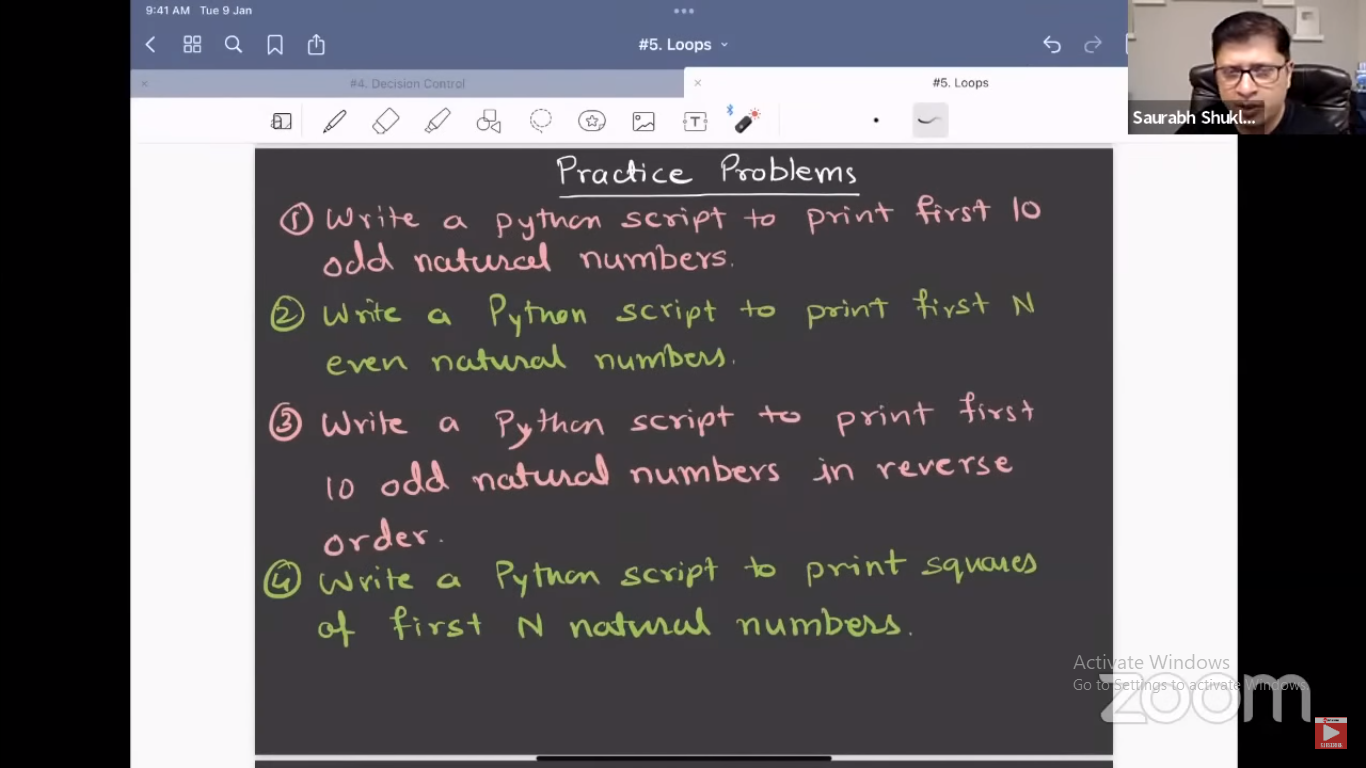 9:41 AM Tue 9 Jan
#5. Loops
#4. Decision Control
#5. Loops
T
Saurabh Shukl...
Practice Problems
① Write a python script to print first 10
odd natural numbers.
② Write a Python script to print first N
even natural numbers.
③ Write a Python script to print first
10 odd natural numbers in reverse
order.
④ Write a Python script to print squares
of first N natural numbers.
Activate Windows
Go to Settings to activate Windows.
zoom